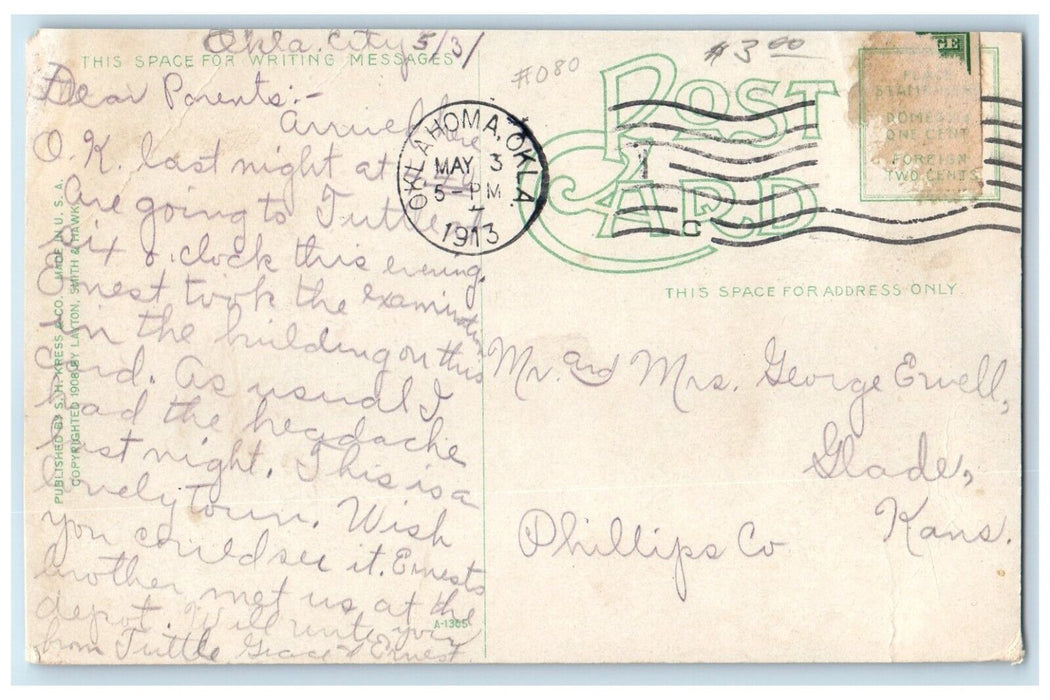 Okla. City 5/3/
THIS SPACE FOR WRITING MESSAGES
Dear Parents:-
Arrived here
O.K. last night at
Are going to Tuttle at
six o.clock this evening.
Ernest took the examination
in the building on this
Card. As usual I
had the headache
last night. This is a
lovely town. Wish
you could see it. Ernests
brother met us at the
depot. Will write you
from Tuttle Grace & Ernest.
A-1365
PUBLISHED BY S. H. KRESS & CO. MADE IN U. S. A.
COPYRIGHTED 1908 BY LAYTON, SMITH & HAWK
OKLAHOMA, OKLA.
MAY 3
5-PM
1913
#080
#3.00
POST
CARD
PLACE
STAMP
DOMESTIC
ONE CENT
FOREIGN
TWO CENTS
THIS SPACE FOR ADDRESS ONLY.
Mr. and Mrs. George Ewell,
Glade,
Kans.
Phillips Co